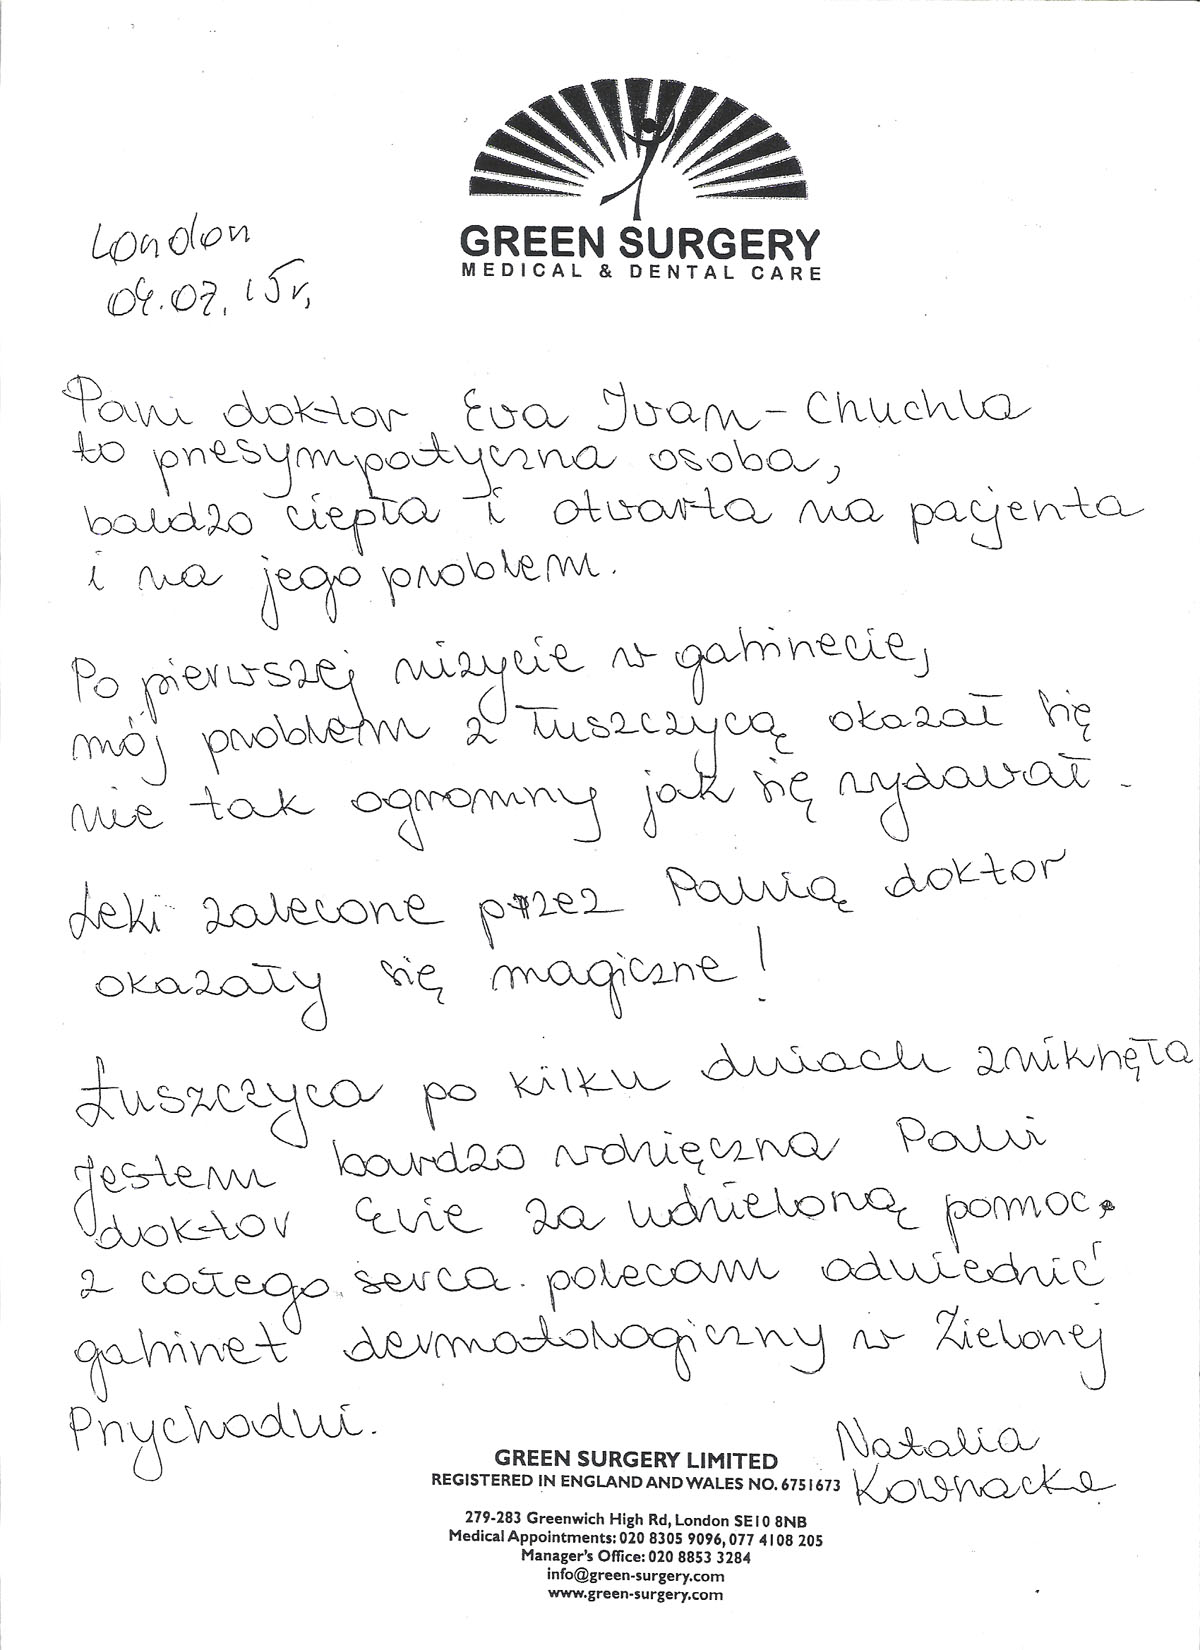 GREEN SURGERY
MEDICAL & DENTAL CARE
London
04.07.15r.
Pani doktor Ewa Iwan-Chuchla
to przesympatyczna osoba,
bardzo ciepła i otwarta na pacjenta
i na jego problem.
Po pierwszej wizycie w gabinecie,
mój problem z łuszczycą okazał się
nie tak ogromny jak się wydawał.
Leki zalecone przez Panią doktor
okazały się magiczne!
Łuszczyca po kilku dniach zniknęła
Jestem bardzo wdzięczna Pani
doktor Ewie za udzieloną pomoc.
Z całego serca polecam odwiedzić
gabinet dermatologiczny w Zielonej
Przychodni.
Natalia
Kownacka
GREEN SURGERY LIMITED
REGISTERED IN ENGLAND AND WALES NO. 6751673
279-283 Greenwich High Rd, London SE10 8NB
Medical Appointments: 020 8305 9096, 077 4108 205
Manager's Office: 020 8853 3284
info@green-surgery.com
www.green-surgery.com